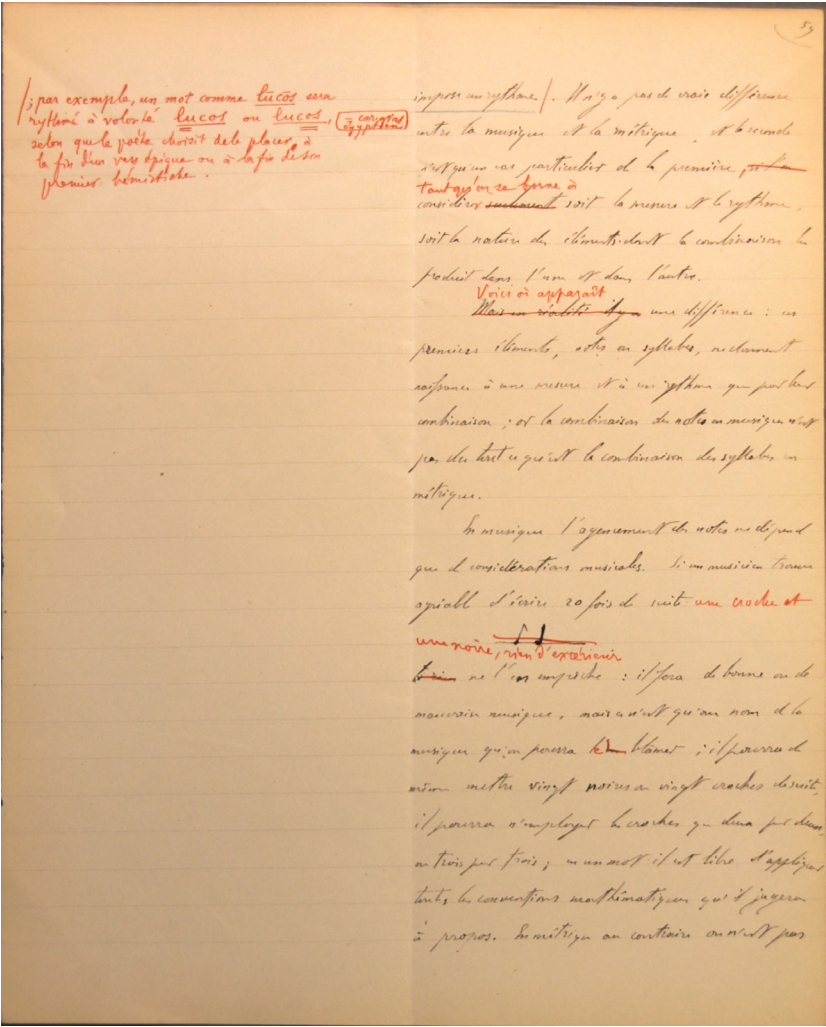 59
; par exemple, un mot comme lūcōs sera
rythmé à volonté lucos ou lucos,
selon que le poète choisit de le placer, à
la fin d'un vers épique ou à la fin de son
premier hémistiche.
impose un rythme. Il n'y a pas de vraie différence
entre la musique et la métrique, et la seconde
n'est qu'un cas particulier de la première,
tant qu'on se borne à
considérer seulement soit la mesure et le rythme,
soit la nature des éléments dont la combinaison les
produit dans l'une et dans l'autre.
Voici où apparaît
Mais en réalité il y a une différence : ces
premiers éléments, notes ou syllabes, ne donnent
naissance à une mesure et à un rythme que par leur
combinaison ; or la combinaison des notes en musique n'est
pas du tout ce qu'est la combinaison des syllabes en
métrique.
En musique l'agencement des notes ne dépend
que de considérations musicales. Si un musicien trouve
agréable d'écrire 20 fois de suite une croche et
une noire, rien d'extérieur
ne l'en empêche : il fera de bonne ou de
mauvaise musique, mais ce n'est qu'au nom de la
musique qu'on pourra le blâmer ; il pourra de
même mettre vingt noires ou vingt croches de suite,
il pourra n'employer les croches que deux par deux,
ou trois par trois ; en un mot il est libre d'appliquer
toutes les conventions mathématiques qu'il jugera
à propos. En métrique au contraire on n'est pas